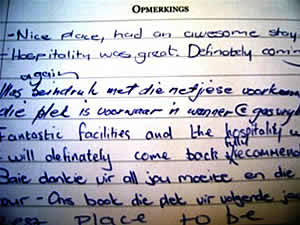 OPMERKINGS
- Nice place, had an awesome stay
- Hospitality was great. Definately comin
again
Was beindruk met die netjiese voorkom
die plek is voorwaar 'n wenner @ gaswryh
Fantastic facilities and the hospitality w
- will definately come back & fully recommend
Baie dankie vir all jou moeite en die
uur - Ons book die plek vir volgende jou
PLACE to be